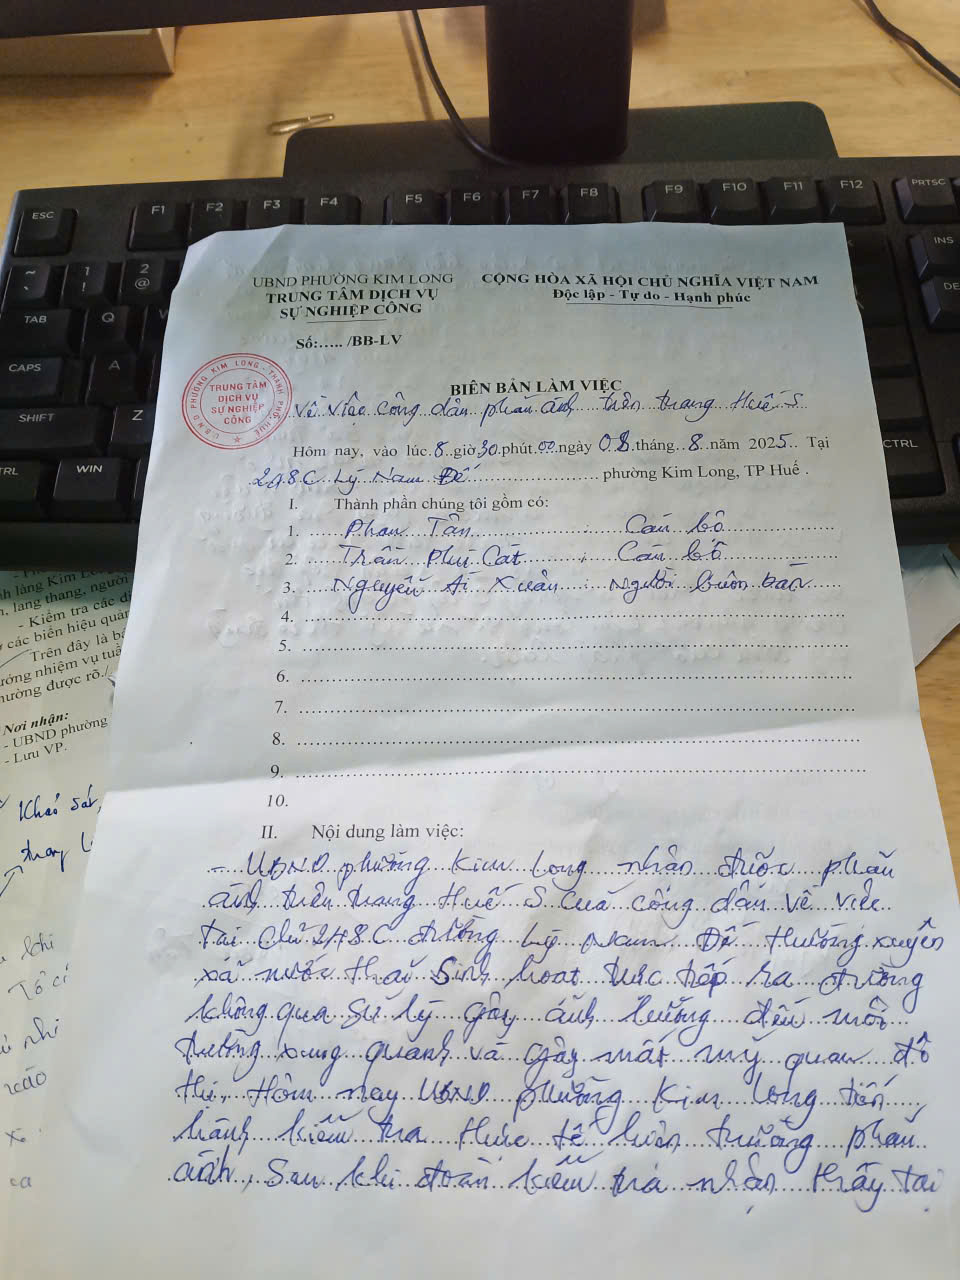 ESC
F1
F2
F3
F4
F5
F6
F7
F8
F9
F10
F11
F12
PRTSC
INS
TAB
Q
CAPS
A
SHIFT
Z
WIN
CTRL
UBND PHƯỜNG KIM LONG
TRUNG TÂM DỊCH VỤ
SỰ NGHIỆP CÔNG
Số:..... /BB-LV
CỘNG HÒA XÃ HỘI CHỦ NGHĨA VIỆT NAM
Độc lập - Tự do - Hạnh phúc
U.B.N.D PHƯỜNG KIM LONG - THÀNH PHỐ HUẾ
TRUNG TÂM
DỊCH VỤ
SỰ NGHIỆP
CÔNG
BIÊN BẢN LÀM VIỆC
Về việc công dân phản ánh trên trang Huế S
Hôm nay, vào lúc 8 giờ 30 phút 00 ngày 08 tháng 8 năm 2025 Tại
248C Lý Nam Đế phường Kim Long, TP Huế .
I. Thành phần chúng tôi gồm có:
1. Phan Tân : Cán bộ
2. Trần Phú Cát ; Cán bộ
3. Nguyễn Ái Xuân : Người buôn bán
4.
5.
6.
7.
8.
9.
10.
II. Nội dung làm việc:
- UBND phường Kim Long nhận được phản
ánh trên trang Huế S của công dân về việc
tại 248C đường Lý Nam Đế thường xuyên
xả nước thải sinh hoạt trực tiếp ra đường
không qua sử lý gây ảnh hưởng đến môi
trường xung quanh và gây mất mỹ quan đô
thị, Hôm nay UBND phường Kim Long tiến
hành kiểm tra thực tế hiện trường phản
ánh, Sau khi đoàn kiểm tra nhận thấy tại
lang thang, người
- Kiểm tra các
các biển hiệu
Trên đây là
nhiệm vụ
được rõ./
Nơi nhận:
- UBND phường
- Lưu VP.
Khảo sát,